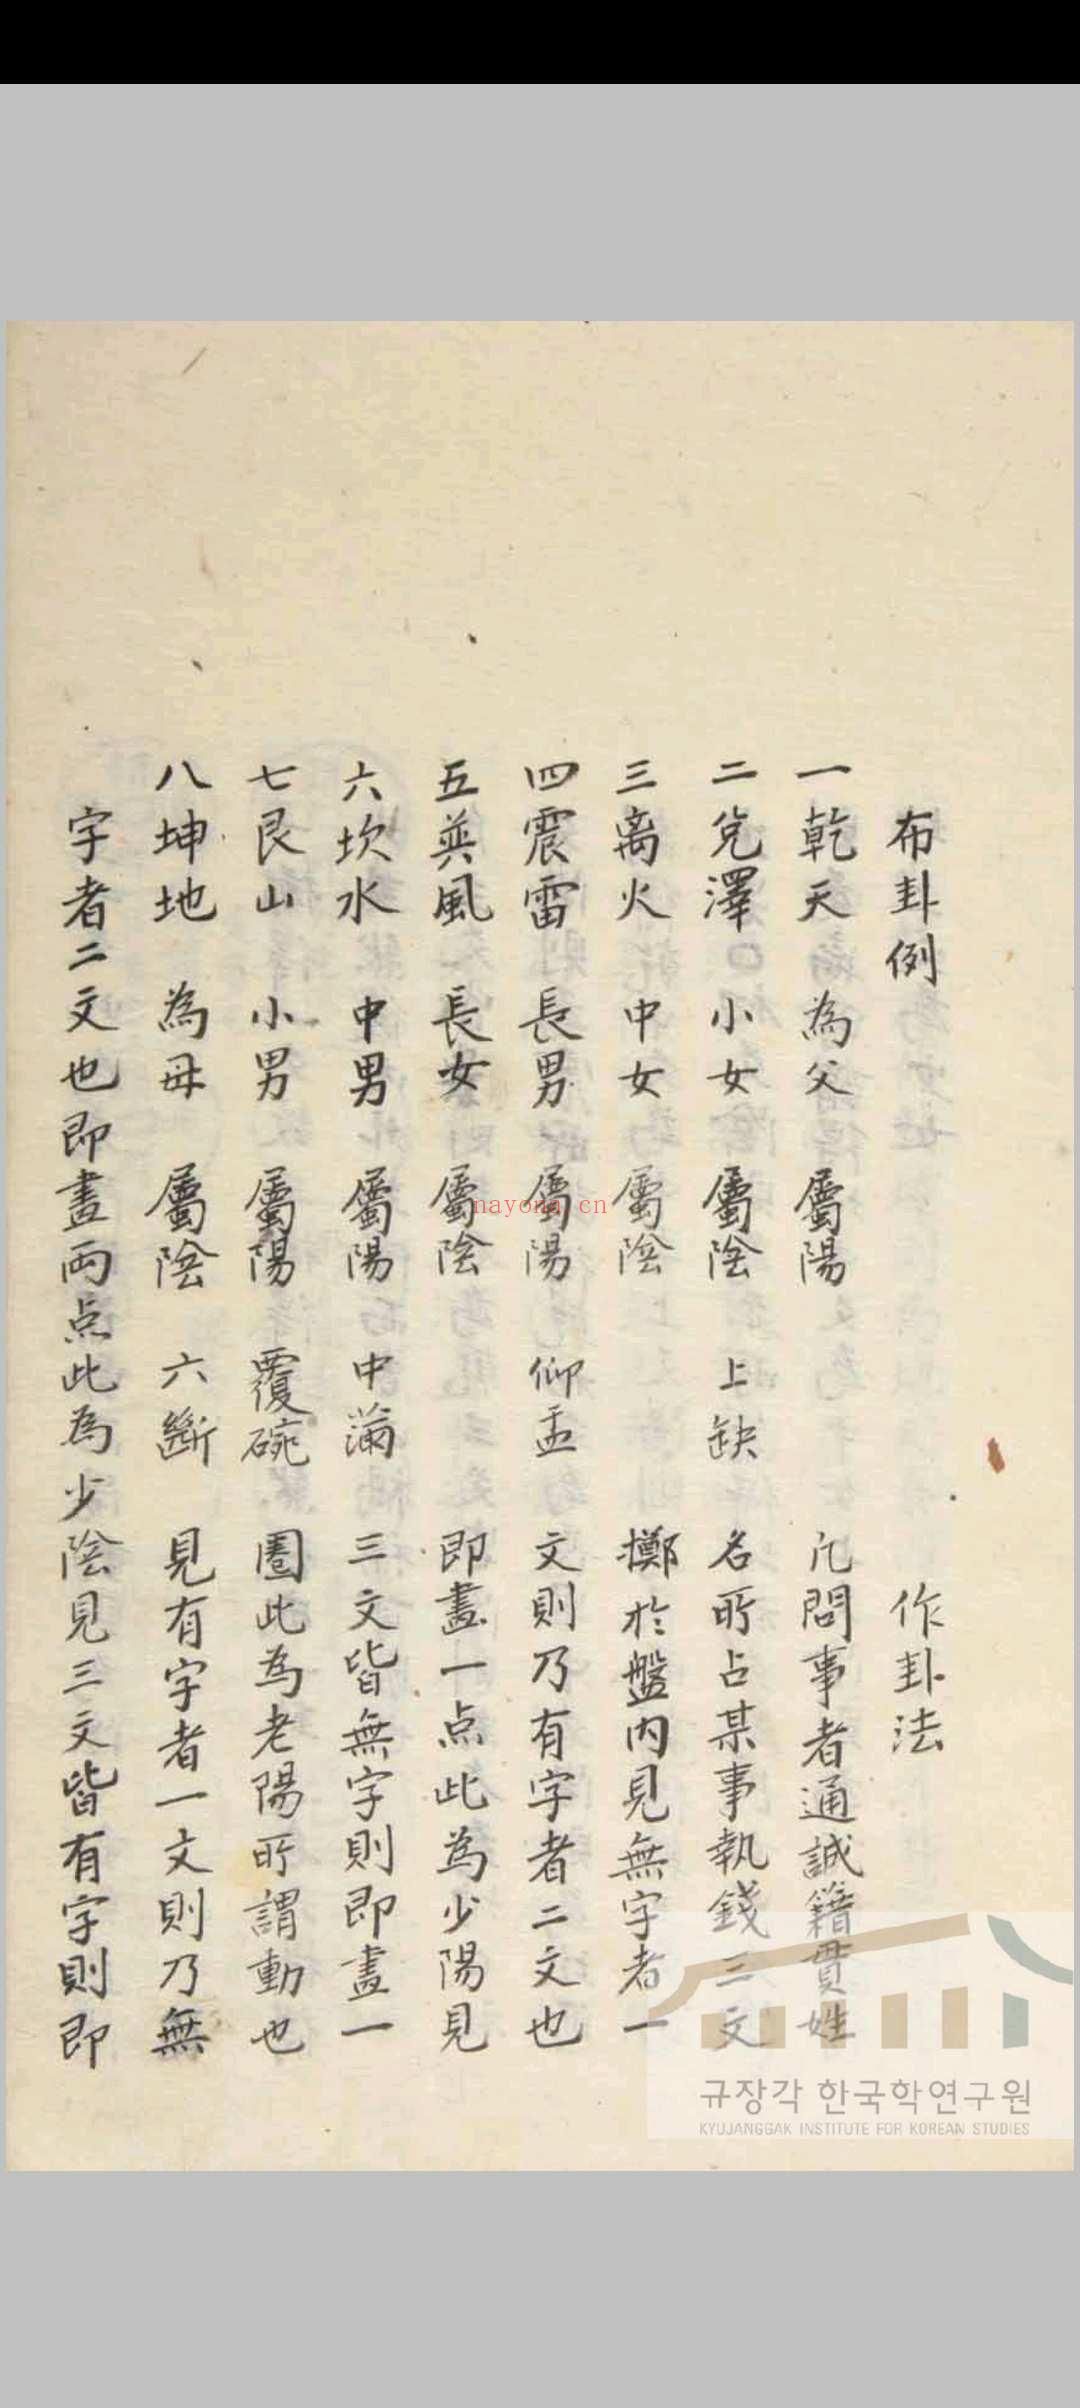 布卦例 作卦法
一乾天 為父 屬陽 凢問事者通誠籍貫姓
二兌澤 小女 屬陰 上缺 名所占某事執錢三文
三离火 中女 屬陰 擲於盤內見無字者一
四震雷 長男 屬陽 仰盂 文則乃有字者二文也
五巽風 長女 屬陰 即畫一点此為少陽見
六坎水 中男 屬陽 中滿 三文皆無字則即畫一
七艮山 小男 屬陽 覆碗 圈此為老陽所謂動也
八坤地 為母 屬陰 六斷 見有字者一文則乃無
字者二文也即畫兩点此為少陰見三文皆有字則即
nayona.cn
규장각 한국학연구원
KYUJANGGAK INSTITUTE FOR KOREAN STUDIES